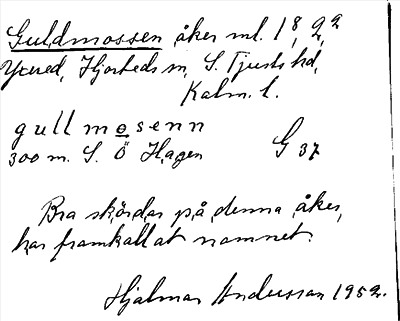 Guldmossen åker ml. 1,8,2,2
Ycred, Hjorteds sn, S. Tjusts hd,
Kalm. l.
gullmosenn
300 m. S. Ö Hagen G 37
Bra skördar på denna åker,
har framkallat namnet.
Hjalmar Andersson 1952.